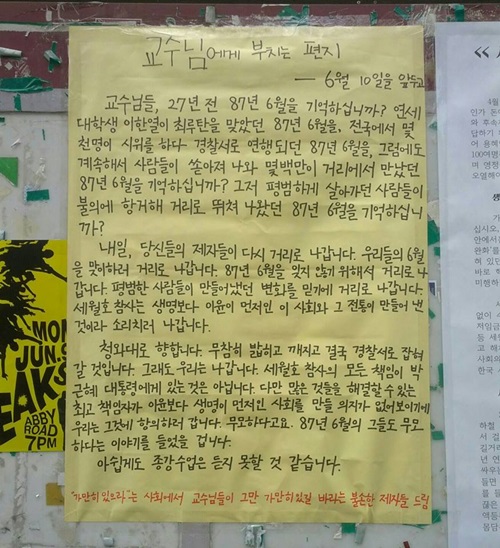 교수님에게 부치는 편지
— 6월 10일을 앞두고
교수님들, 27년 전 87년 6월을 기억하십니까? 연세
대학생 이한열이 최루탄을 맞았던 87년 6월을. 전국에서 몇
천명이 시위를 하다 경찰서로 연행되던 87년 6월을, 그럼에도
계속해서 사람들이 쏟아져 나와 몇백만이 거리에서 만났던
87년 6월을 기억하십니까? 그저 평범하게 살아가던 사람들이
불의에 항거해 거리로 뛰쳐 나왔던 87년 6월을 기억하십니
까?
내일, 당신들의 제자들이 다시 거리로 나갑니다. 우리들의 6월
을 맞이하러 거리로 나갑니다. 87년 6월을 잊지 않기 위해서 거리로 나
갑니다. 평범한 사람들이 만들어냈던 변화를 믿기에 거리로 나갑니다.
세월호 참사는 생명보다 이윤이 먼저인 이 사회와 그 전통이 만들어 낸
것이라 소리치러 나갑니다.
청와대로 향합니다. 무참히 밟히고 깨지고 결국 경찰서로 잡혀
갈 것입니다. 그래도 우리는 나갑니다. 세월호 참사의 모든 책임이 박
근혜 대통령에게 있는 것은 아닙니다. 다만 많은 것들을 해결할 수 있는
최고 책임자가 이윤보다 생명이 먼저인 사회를 만들 의지가 없어보이기에
우리는 그것에 항의하러 갑니다. 무모하다고요. 87년 6월의 그들도 무모
하다는 이야기를 들었을 겁니다.
아쉽게도 종강수업은 듣지 못할 것 같습니다.
"가만히 있으라"는 사회에서 교수님들이 그만 가만히 있길 바라는 불손한 제자들 드림
MON
JUN.
EAKS
ABBY
ROAD
7PM